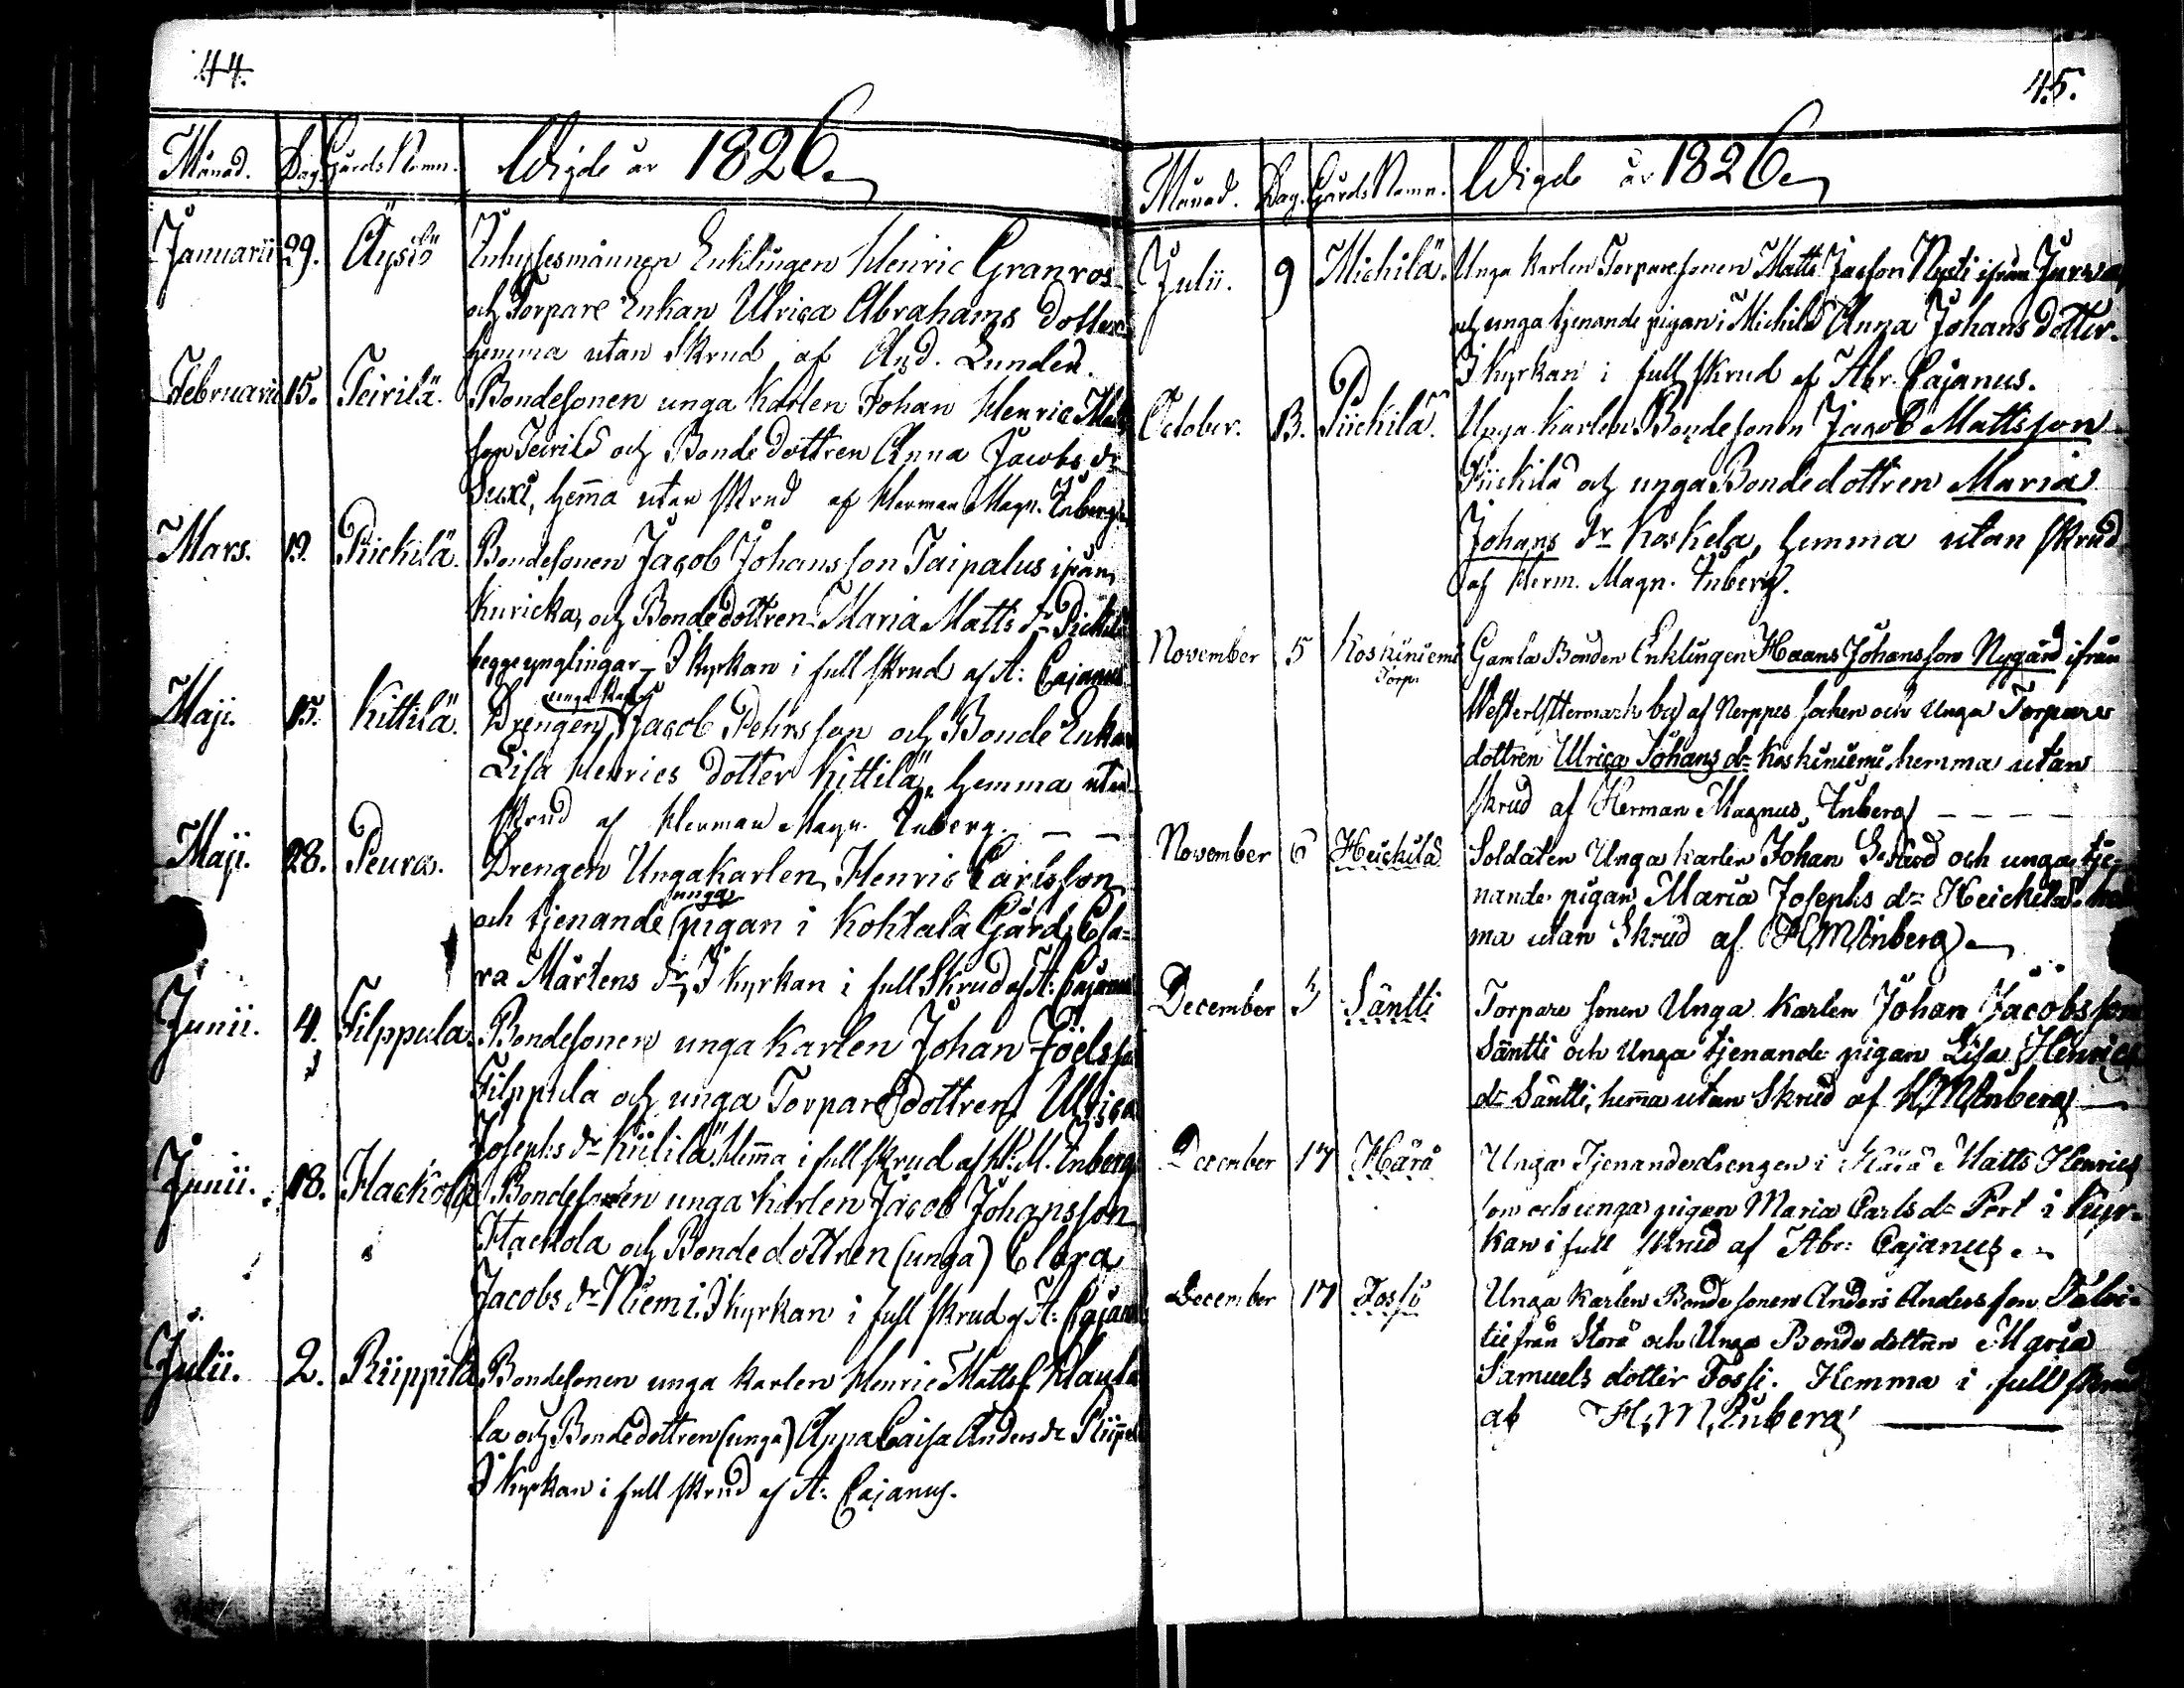 44.
Månad. Dag. Gårds Namn. Wigde år 1826.
Januarii 29. Äysiö Inhysesmannen Enklingen Henric Granros
och Torpare Enkan Ulrica Abrahams dotter
hemma utan skrud af And. Lundén.
Februarii 15. Teirilä. Bondesonen unga Karlen Johan Henric Matts
son Teirilä och Bonde dottren Anna Jacobs dr
Luxi, hema utan skrud af Herman Magn. Inberg.
Mars. 19. Piickilä. Bondesonen Jacob Johansson Taipalus ifrån
Kuricka, och Bondedottren Maria Matts dr Piickilä
begge ynglingar – I kyrkan i full skrud af A: Cajanus
Maji. 15. Kittilä. Drengen, unga Karlen Jacob Pehrsson och Bonde Enkan
Lisa Henrics dotter Kittilä, hemma utan
skrud af Herman Magn. Inberg. — —
Maji. 28. Peura. Drengen Ungakarlen, Henric Carlsson
och tjenande (unga pigan i Kohtala Gård, Cla=
ra Mårtens dr, I kyrkan i full Skrud af A: Cajanus
Junii. 4. Filppula. Bondesonen unga Karlen Johan Joelsson
Filppula och unga Torparedottren Ulrica
Josephs dr Kiililä. Hema i full skrud af H. M. Inberg
Junii. 18. Hackola Bondesonen unga Karlen Jacob Johansson
Hackola och Bondedottren (unga) Clara
Jacobs dr Niemi. I kyrkan i full skrud af A: Cajanus
Julii. 2. Riippilä Bondesonen unga Karlen Henric Matts f. Hauta
la och Bondedottren (unga) Anna Caisa Anders dr Riippilä
I kyrkan i full skrud af A: Cajanus.
45.
Månad. Dag. Gårds Namn. Wigde år 1826.
Julii. 9 Michilä. Unga Karlen Torparesonen Matts Jacsson Nysti ifrån Jurva,
och unga tjenande pigan i Michilä Anna Johans dotter.
I kyrkan i full skrud af Abr. Cajanus.
October. 13. Piickilä. Unga Karlen Bondesonen Jacob Mattsson
Piickilä och unga Bondedottren Maria
Johans dr Koskela, hemma utan skrud
af Herm. Magn. Inberg.
November 5 Koskiniemi Torp. Gamla Bonden Enklingen Haans Johansson Nygård ifrån
Westeryttermark by af Nerppes socken och Unga Torpare
dottren Ulrica Johans dr Koskiniemi, hemma utan
skrud af Herman Magnus Inberg – – – –
November 6 Heickilä Soldaten Unga Karlen Johan Svärd och unga tje=
nande pigan Maria Josephs dr Heickilä hem
ma utan Skrud af H M Inberg
December 3 Säntti Torpare sonen Unga Karlen Johan Jacobsson
Säntti och Unga tjenande pigan Lisa Henrics
dr Säntti, hema utan Skrud af H M Inberg
December 17 Härä Unga Tjenandedrengen i Härä Matts Henrics
son och unga pigan Maria Carls dr Port i kyr-
kan i full skrud af Abr: Cajanus
December 17 Fossi Unga Karlen Bonde sonen Anders Andersson
från Storå och Unga Bonde dottren Maria
Samuels dotter Fossi. Hemma i full skrud
af H. M. Inberg